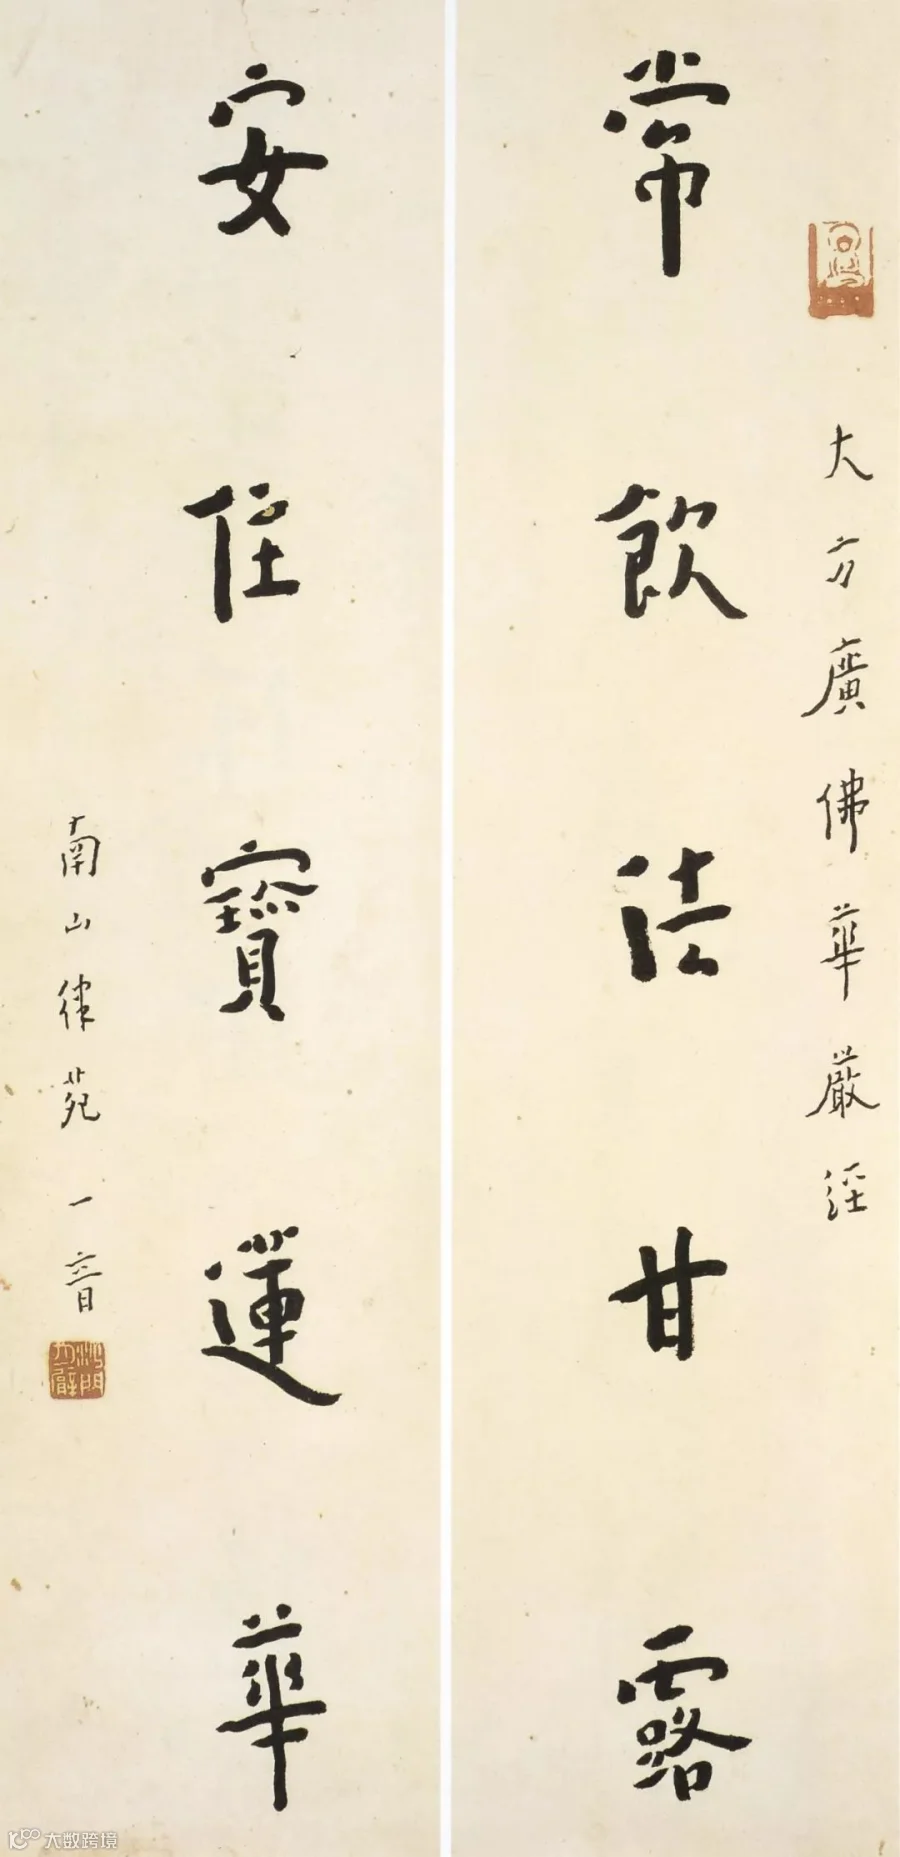 大方廣佛華嚴經
常飲法甘露
安住寶蓮華
南山律苑一音
大数跨境